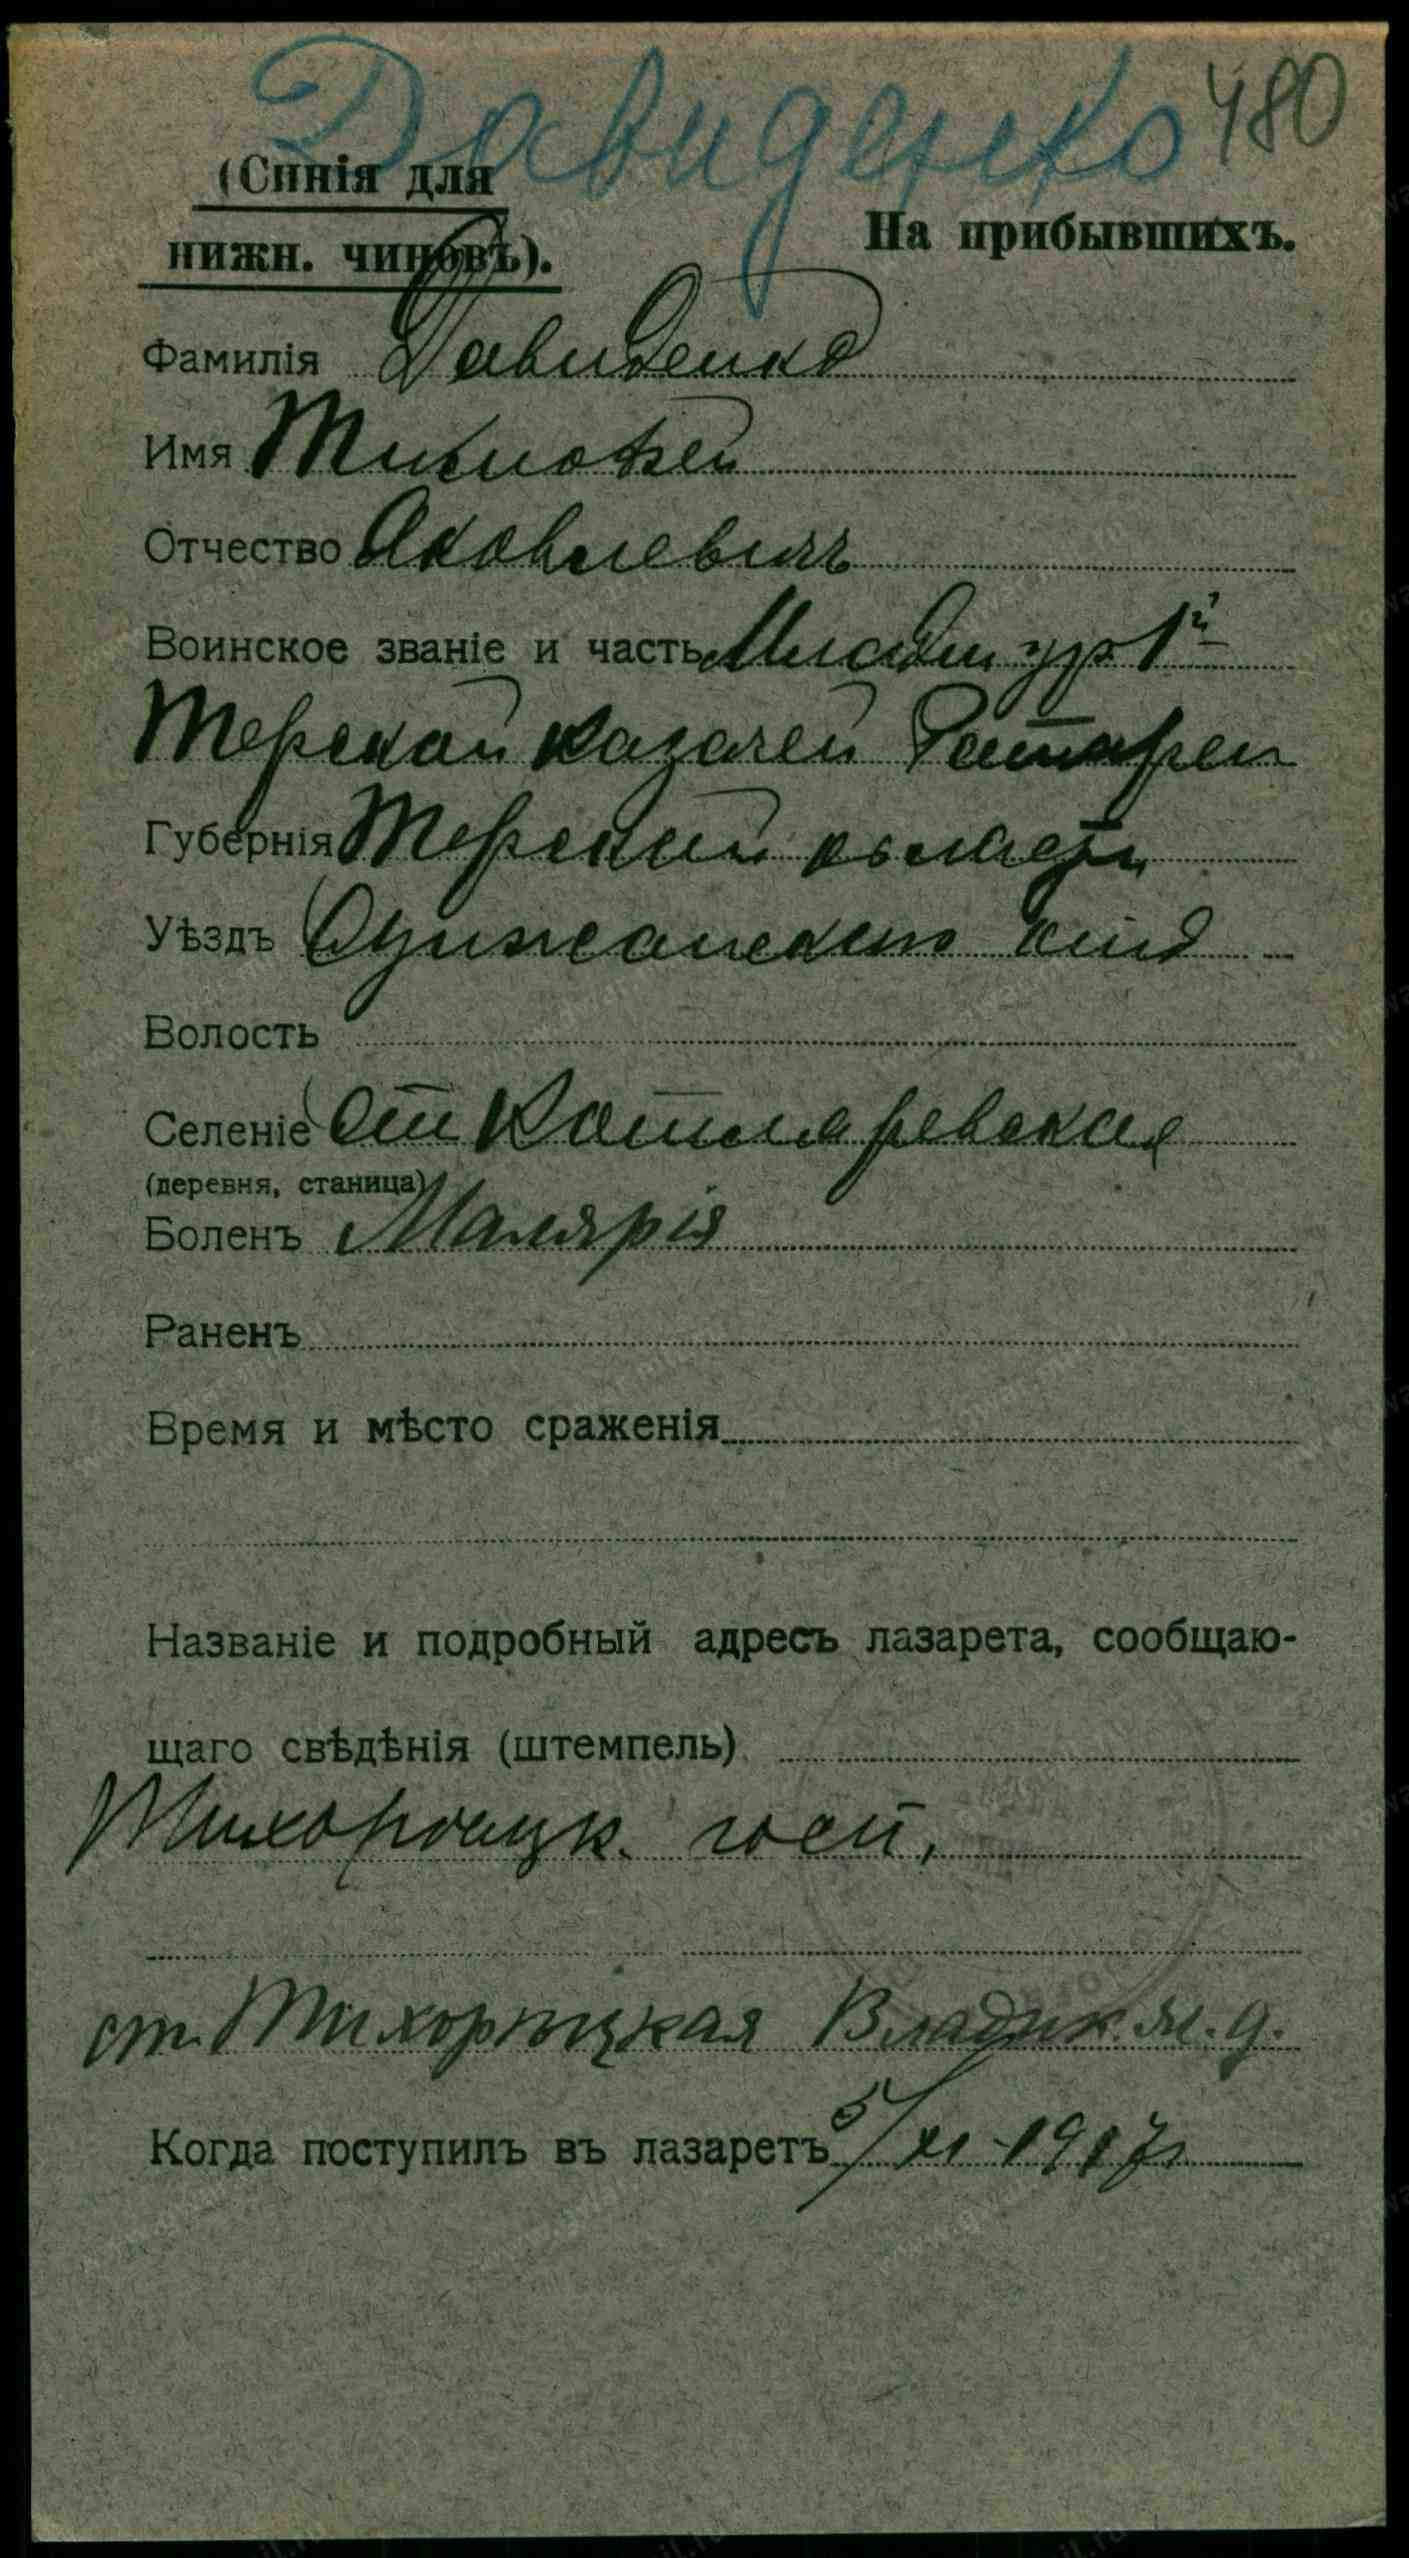 Давиденко 480
(Синія для
нижн. чиновъ).
На прибывшихъ.
Фамилія Давиденко
Имя Тимофей
Отчество Яковлевичъ
Воинское званіе и часть Младш ур 1й
Терской казачей Батареи
Губернія Терской области
Уѣздъ
Волость
Селеніе Ст Котляревская
(деревня, станица)
Боленъ Малярія
Раненъ
Время и мѣсто сраженія
Названіе и подробный адресъ лазарета, сообщаю-
щаго свѣдѣнія (штемпель)
Тихорѣцк. госп.
ст. Тихорѣцкая Владик. ж. д.
Когда поступилъ въ лазаретъ 5/XI-1917г